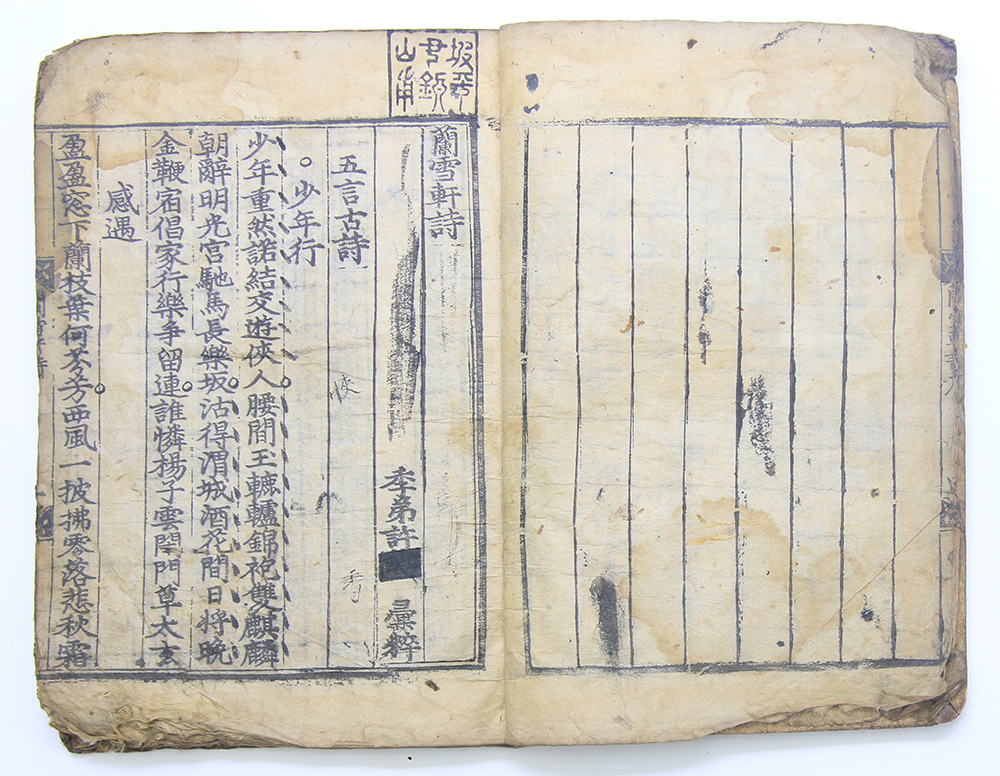 坡平
尹
山甫
蘭雪軒詩
季弟許 彙粹
五言古詩
少年行
少年重然諾結交遊俠人腰間玉轆轤錦袍雙麒麟
朝辭明光宮馳馬長樂坂沽得渭城酒花間日將晩
金鞭宿倡家行樂爭留連誰憐楊子雲閉門尊太玄
感遇
盈盈窓下蘭枝葉何芬芳西風一披拂零落悲秋霜